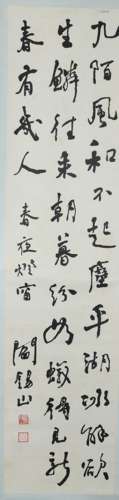 九陌風和不起塵平湖冰解欲
生鱗往來朝暮紛如蟻得見新
春有幾人 春夜燈宵
閻錫山